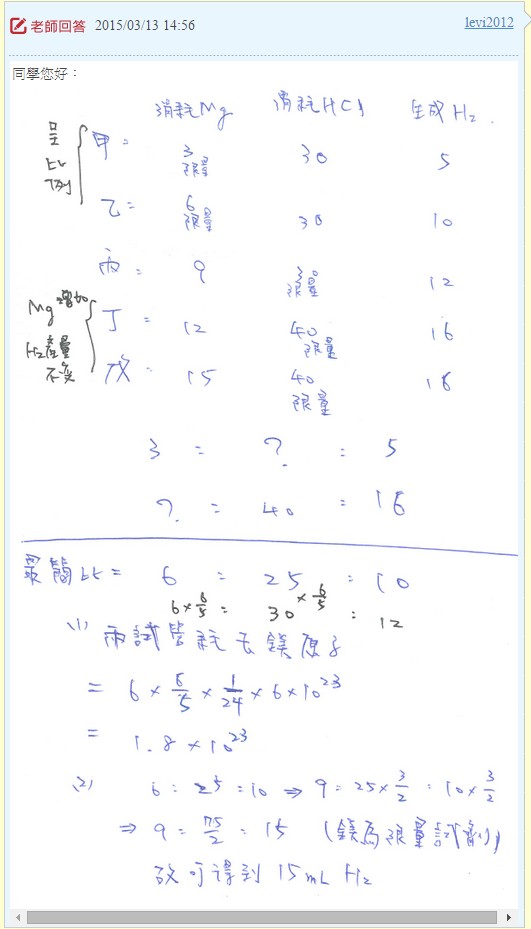 老師回答 2015/03/13 14:56 levi2012
同學您好：
消耗Mg 消耗HCl 生成H2
呈比例
甲: 3 限量 30 5
乙: 6 限量 30 10
丙: 9 限量 12
Mg增加 H2產量不變
丁: 12 40 限量 16
戊: 15 40 限量 16
3 : ? : 5
? : 40 : 16
最簡比= 6 : 25 : 10
6×6/5 : 30 ×6/5 : 12
(1) 丙試管耗去鎂原子
= 6 × 6/5 × 1/24 × 6×10^23
= 1.8×10^23
(2) 6 : 25 : 10 ⇒ 9 : 25×3/2 : 10×3/2
⇒ 9 : 75/2 : 15 (鎂為限量試劑)
故可得到 15mL H2